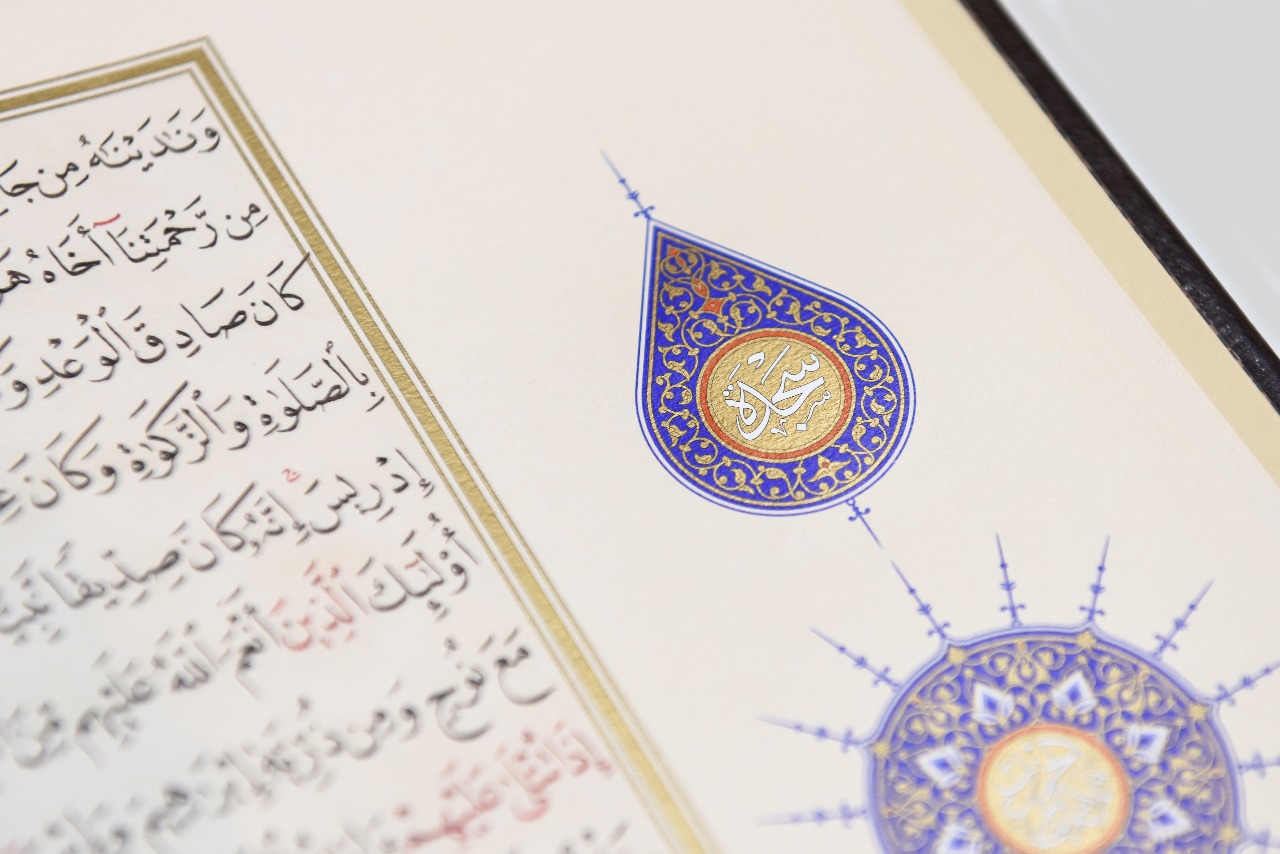 وَنَٰدَيْنَٰهُ مِن جَا
مِن رَّحْمَتِنَآ أَخَاهُ هَٰر
كَانَ صَادِقَ ٱلْوَعْدِ وَ
بِٱلصَّلَوٰةِ وَٱلزَّكَوٰةِ وَكَانَ عِ
إِدْرِيسَ إِنَّهُۥ كَانَ صِدِّيقًا نَّبِيًّا
أُو۟لَٰٓئِكَ ٱلَّذِينَ أَنْعَمَ ٱللَّهُ عَلَيْهِم مِّنَ
مَعَ نُوحٍ وَمِن ذُرِّيَّةِ إِبْرَٰهِيمَ وَإِسْ
إِذَا تُتْلَىٰ عَلَيْهِمْ
سَجْدَة